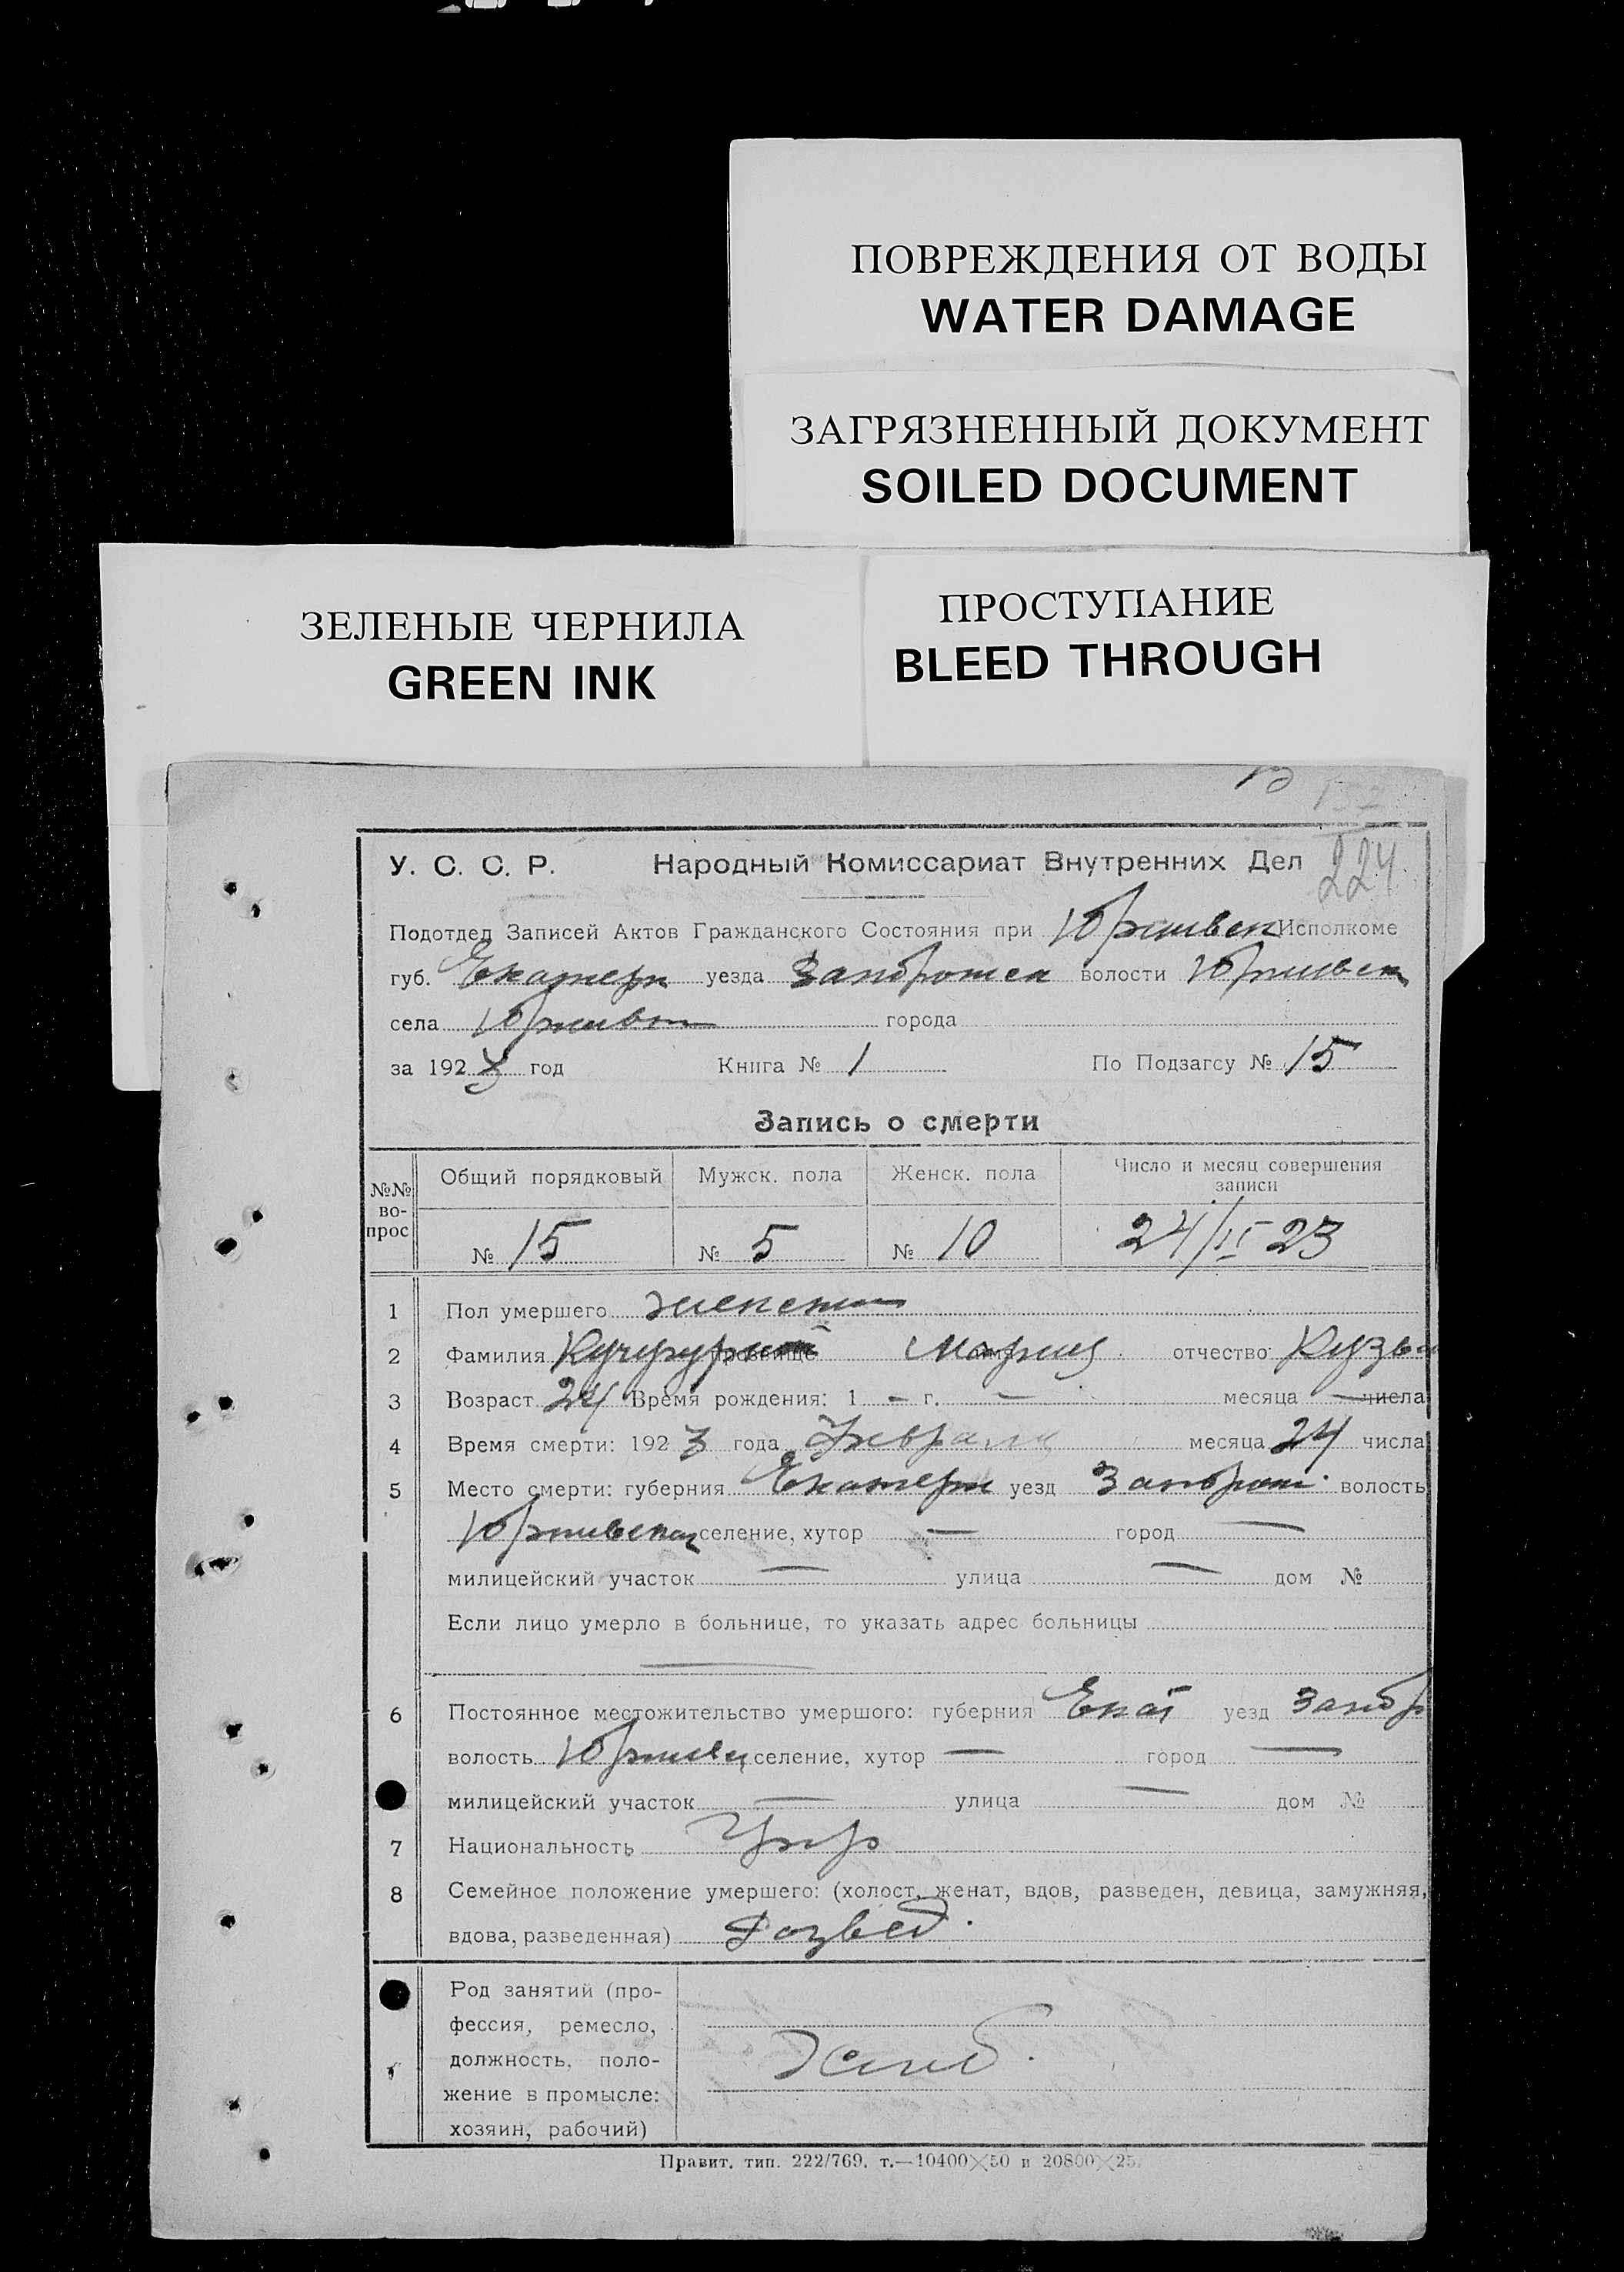 ПОВРЕЖДЕНИЯ ОТ ВОДЫ
WATER DAMAGE
ЗАГРЯЗНЕННЫЙ ДОКУМЕНТ
SOILED DOCUMENT
ЗЕЛЕНЫЕ ЧЕРНИЛА
GREEN INK
ПРОСТУПАНИЕ
BLEED THROUGH
224
У. С. С. Р. Народный Комиссариат Внутренних Дел
Подотдел Записей Актов Гражданского Состояния при Исполкоме
губ. Екатерин уезда волости
села города
за 1923 год Книга № 1 По Подзагсу № 15
Запись о смерти
№№ во-прос Общий порядковый Мужск. пола Женск. пола Число и месяц совершения записи
№ 15 № 5 № 10 24/II 23
1 Пол умершего
2 Фамилия прозвище имя Мария отчество Кузьм
3 Возраст 24 Время рождения: 1 – г. — месяца — числа
4 Время смерти: 1923 года Февраля месяца 24 числа
5 Место смерти: губерния Екатерин уезд волость
селение, хутор — город —
милицейский участок — улица — дом №
Если лицо умерло в больнице, то указать адрес больницы
—
6 Постоянное местожительство умершого: губерния Екат уезд Запор
волость селение, хутор — город —
милицейский участок — улица — дом №
7 Национальность Укр
8 Семейное положение умершего: (холост, женат, вдов, разведен, девица, замужняя,
вдова, разведенная) Розвед.
Род занятий (про-
фессия, ремесло,
должность, поло-
жение в промысле:
хозяин, рабочий)
Правит. тип. 222/769. т.—10400×50 и 20800×25.